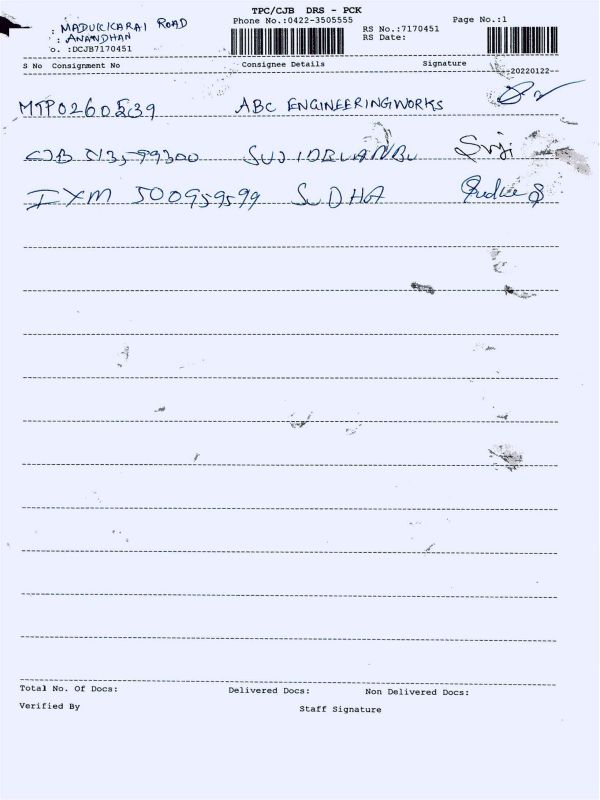 TPC/CJB DRS - PCK
: MADUKKARAI ROAD Phone No.:0422-3505555 Page No.:1
: ANANDHAN RS No.:7170451
o. :DCJB7170451 RS Date:
S No Consignment No Consignee Details Signature
20220122
MTP0260539 ABC ENGINEERINGWORKS
CJB 513599300 Suji
IXM 500959599 SUDHA Sudha S
Total No. Of Docs: Delivered Docs: Non Delivered Docs:
Verified By Staff Signature